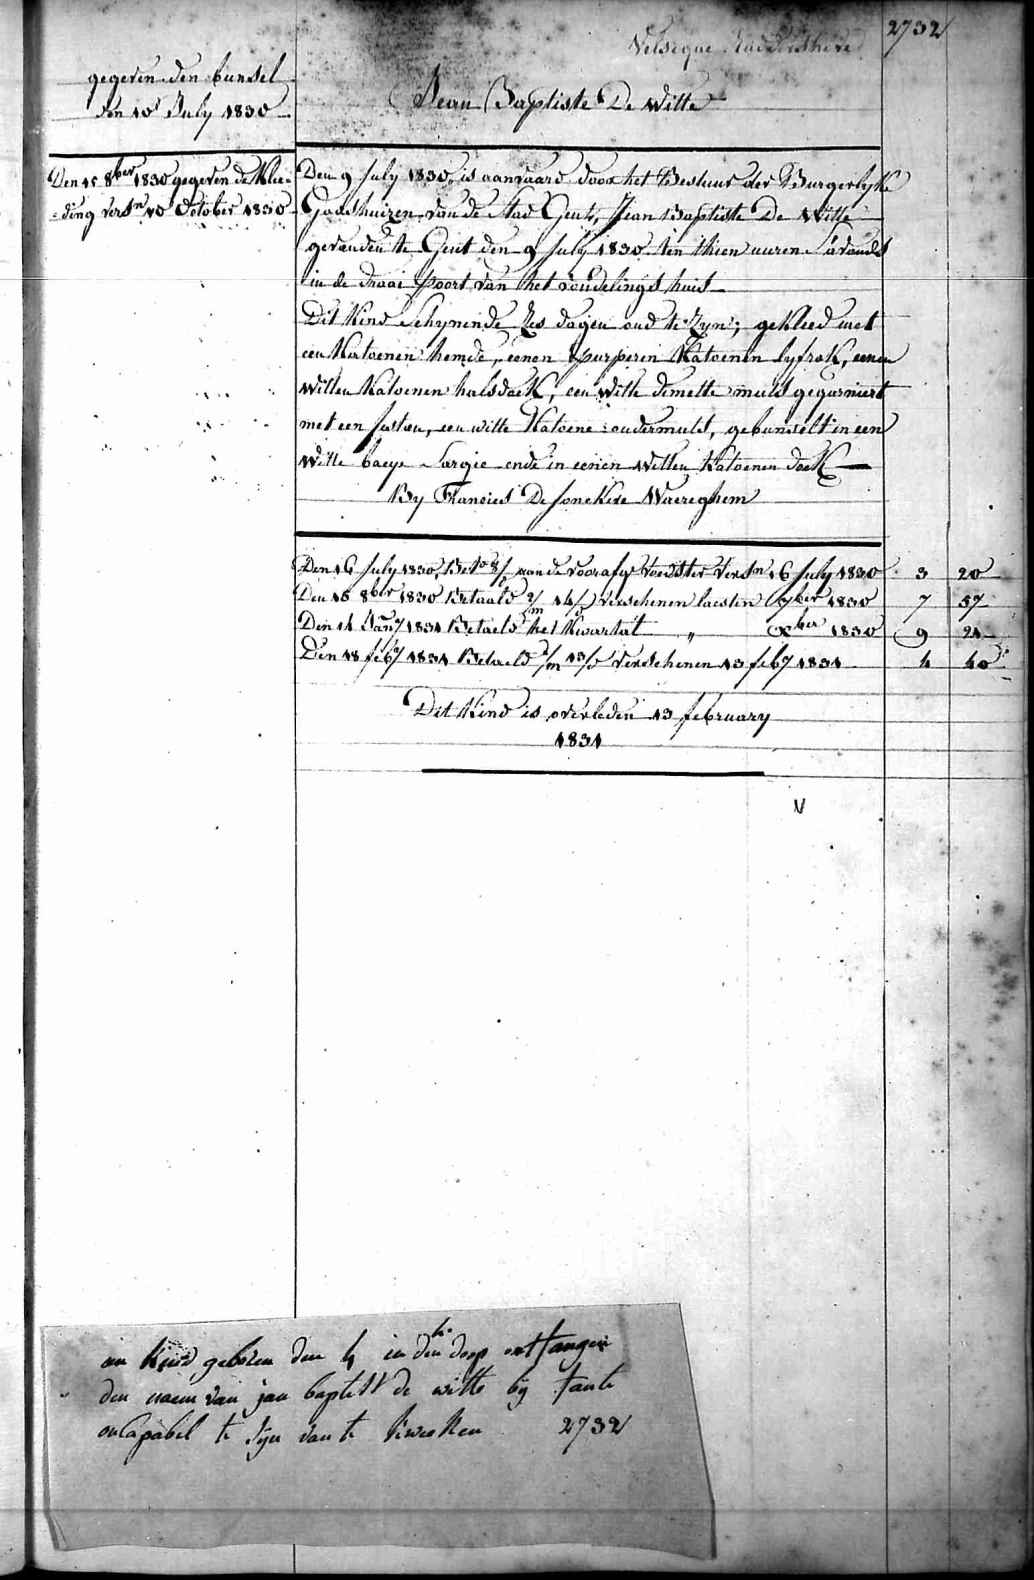 2732
Velseque Ruddershove
gegeven den bunsel
den 10 July 1830
Jean Baptiste De Witte
Den 15 8ber 1830 gegeven de Klee-
=ding versn 10 October 1830
Den 9 July 1830, is aanvaard door het Bestuur der Burgerlyke
Godshuizen van de Stad Gent, Jean Baptiste De Witte
gevonden te Gent den 9 July 1830 ten thien uuren S'avonds
in de draai poort van het vondelings huis
Dit Kind Schynende zes dagen oud te Zyn; gekleed met
een Katoenen hemde, eenen purperen Katoenen lyfrok, eenen
witten Katoenen halsdoek, een witte demette muts gegarniert
met een faston, een witte Katoene ondermuts, gebunselt in een
witte baeye Sargie ende in eenen witten Katoenen doek
By Francies De Jonckere Waereghem
Den 16 July 1830, Bet aan de voorafge voedster versn 16 July 1830 3 20
Den 16 8ber 1830 Betaald 2/m 14/d verschenen laesten 7ber 1830 7 57
Den 14 Jany 1831 Betaeld het Kwartal " Xber 1830 9 21
Den 18 feby 1831 Betaeld 1/m 13/d verschenen 13 feby 1831 4 40
Dit Kind is overleden 13 february
1831
V
een kind geboren den 4 in den doop ontfangen
den naem van jan baptist de witte bij fante
oncapabel te sijn van te kweeken 2732